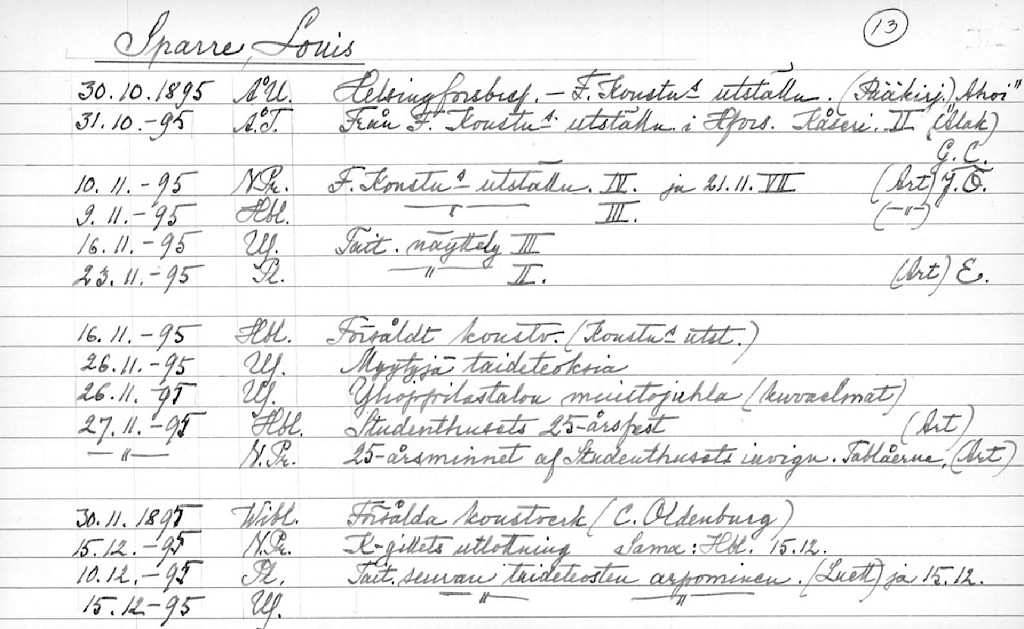 Sparre, Louis
13
30.10.1895 Å.U. Helsingforsbref. – F. Konstns utställn. (Pääkirj.) Ahoi"
31.10.-95 Å.T. Från F. Konstns utställn i Hfors. Kåseri. II (Alak)
G. C.
10.11.-95 N.Pr. F. Konstns utställn. IV. ja 21.11. VII (Art) J. Ö.
9.11.-95 Hbl. —"— III. (-"-)
16.11.-95 Uf. Tait. näyttely III
23.11.-95 Pl. —"— II. (Art) E.
16.11.-95 Hbl. Försåldt konstv. (Konstns utst.)
26.11.-95 Uf. Myytyjä taideteoksia
26.11.-95 Uf. Ylioppilastalon muistojuhla (kuvaelmat)
27.11.-95 Hbl. Studenthusets 25-årsfest (Art)
—"— N.Pr. 25-årsminnet af Studenthusets invign. Tablåerna. (Art)
30.11.1895 Wibl. Försålda konstverk (C. Oldenburg)
15.12.-95 N.Pr. K-gillets utlottning Sama: Hbl. 15.12.
10.12.-95 Pl. Tait. seuran taideteosten arpominen. (Luett) ja 15.12.
15.12-95 Uf. —"— —"—